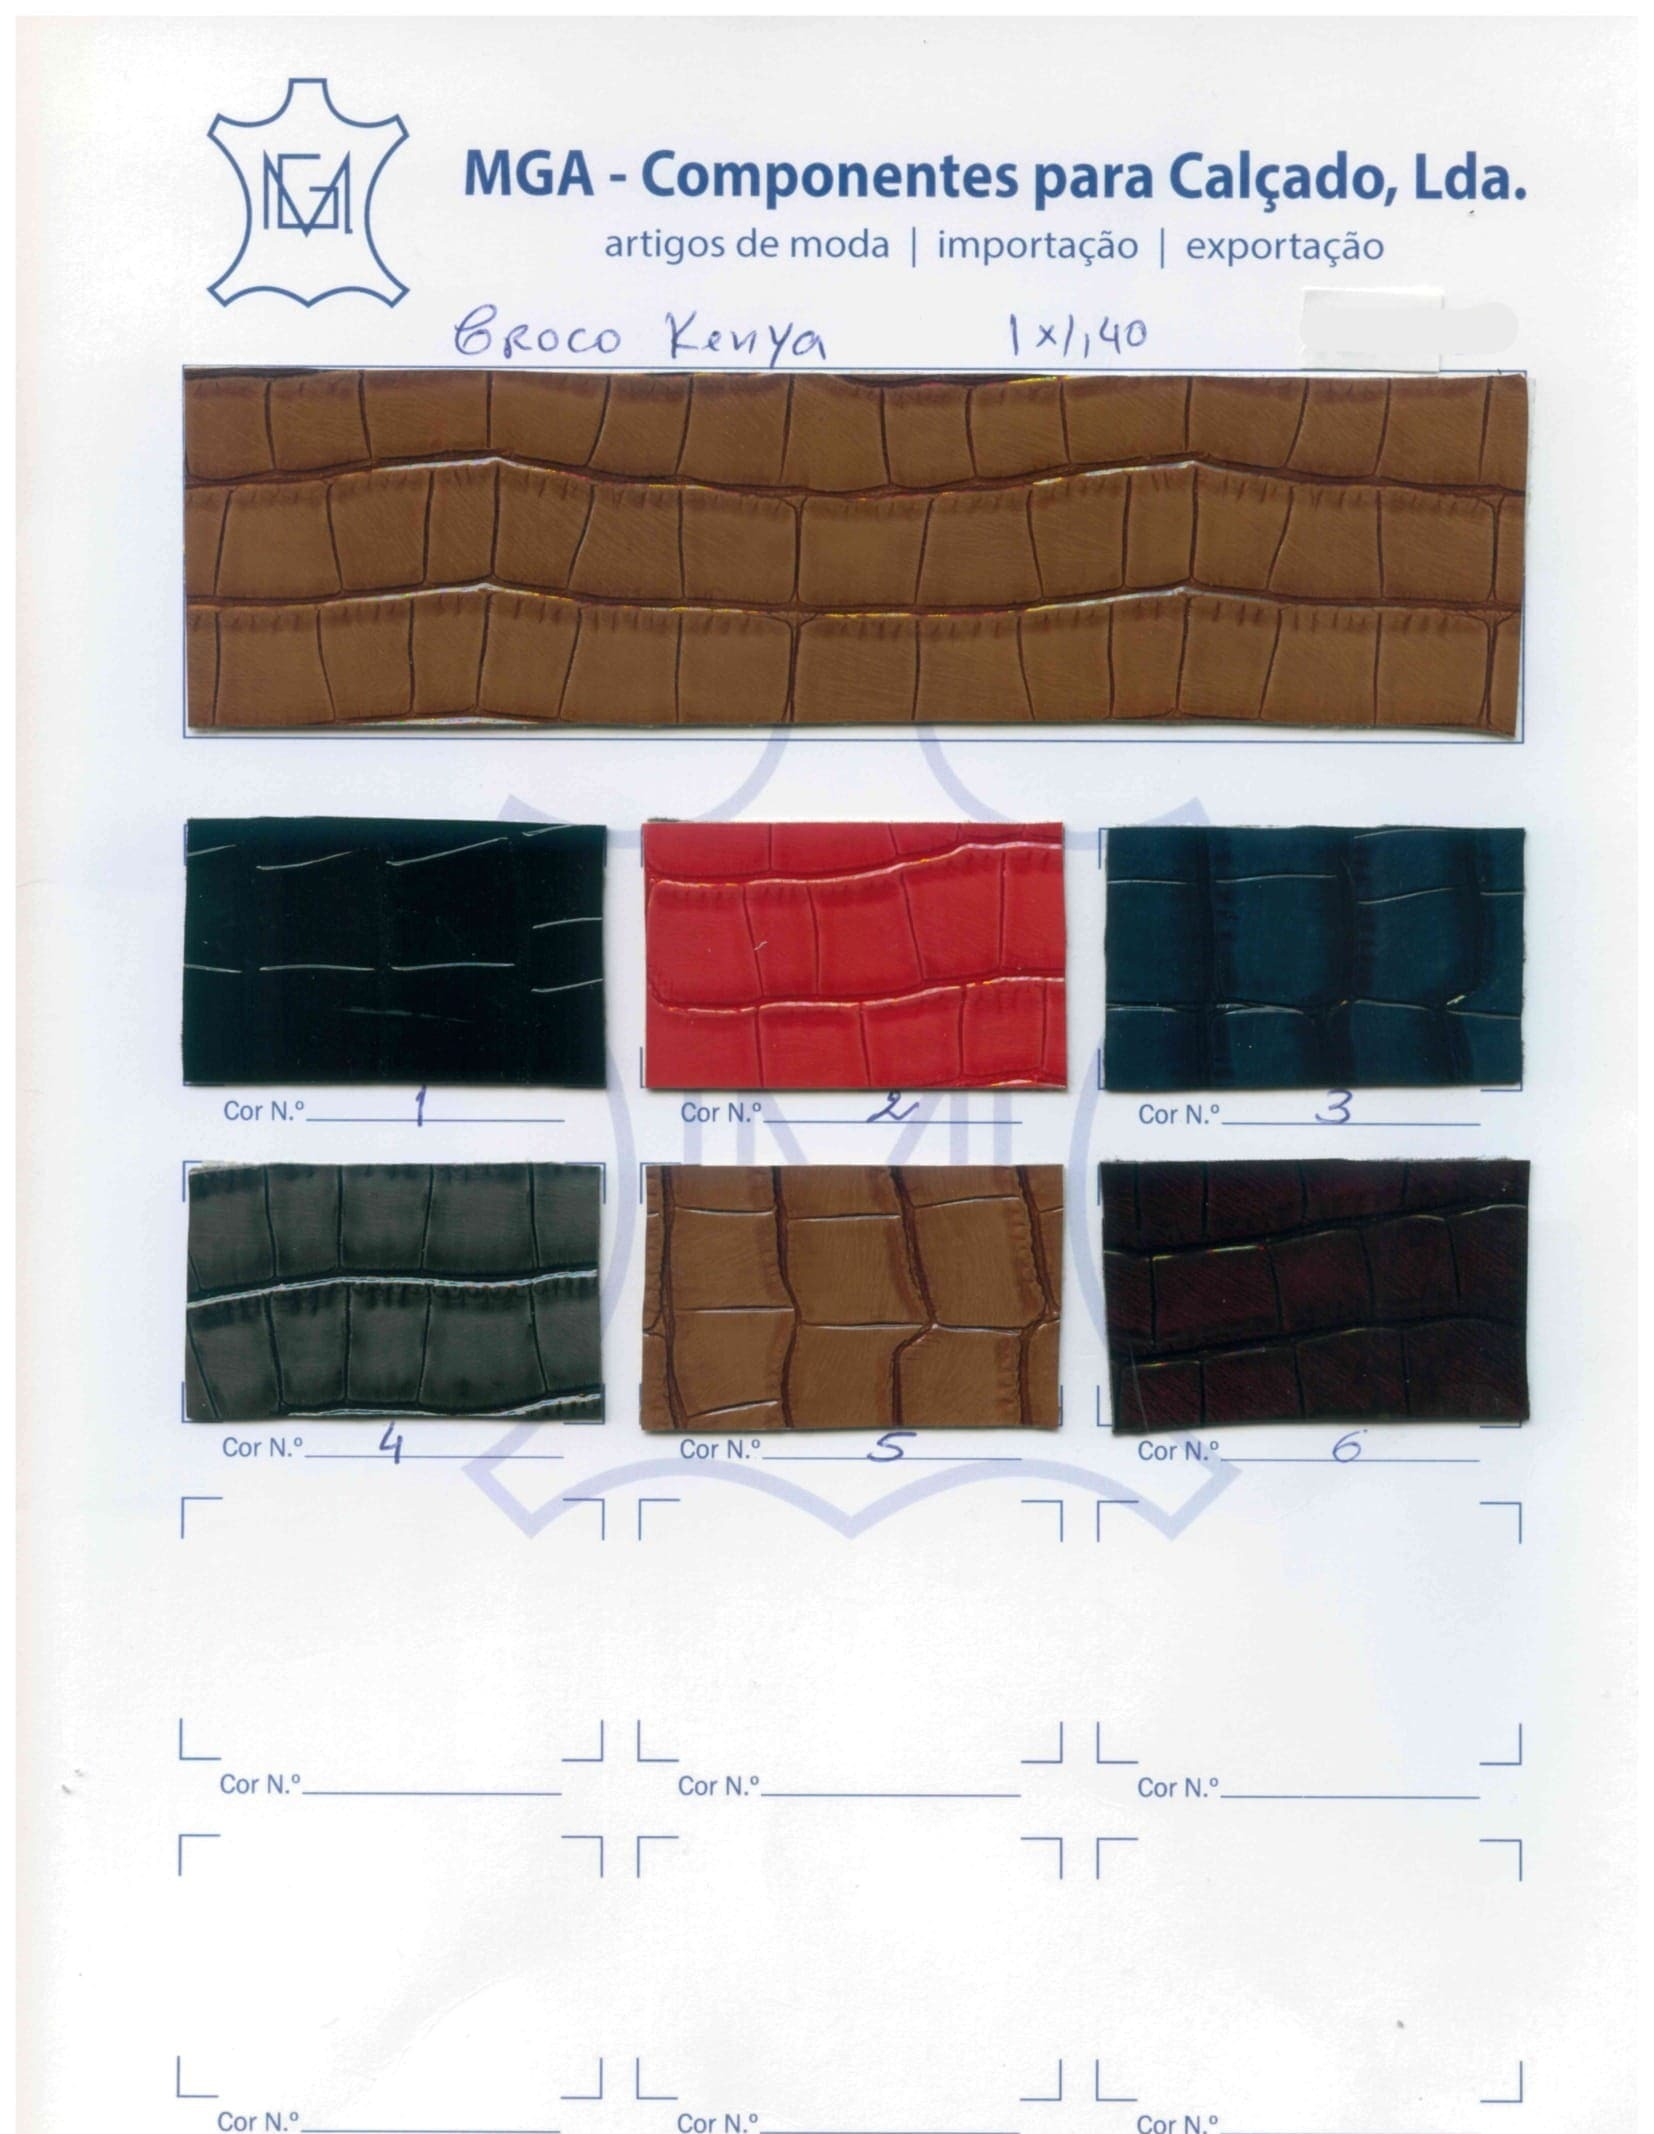 MGA
MGA - Componentes para Calçado, Lda.
artigos de moda | importação | exportação
Croco Kenya 1x1,40
Cor N.º 1 Cor N.º 2 Cor N.º 3
Cor N.º 4 Cor N.º 5 Cor N.º 6
Cor N.º Cor N.º Cor N.º
Cor N.º Cor N.º Cor N.º